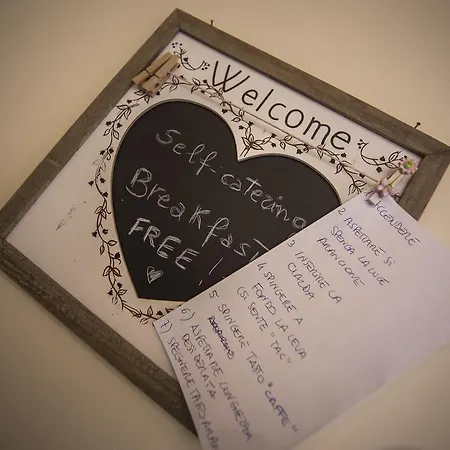 Welcome
Self-catering
Breakfast
FREE!
ACCENDERE
2 ASPETTARE SI
SPENGA LA LUCE
ARANCIONE
3 INSERIRE LA
CIALDA
4 SPINGERE A
FONDO LA LEVA
(SI SENTE "TAC"
5 SPINGERE TASTO "CAFFE"
6) ASPETTARE LUNGHEZZA
DESIDERATA
7) SPEGNERE TASTO